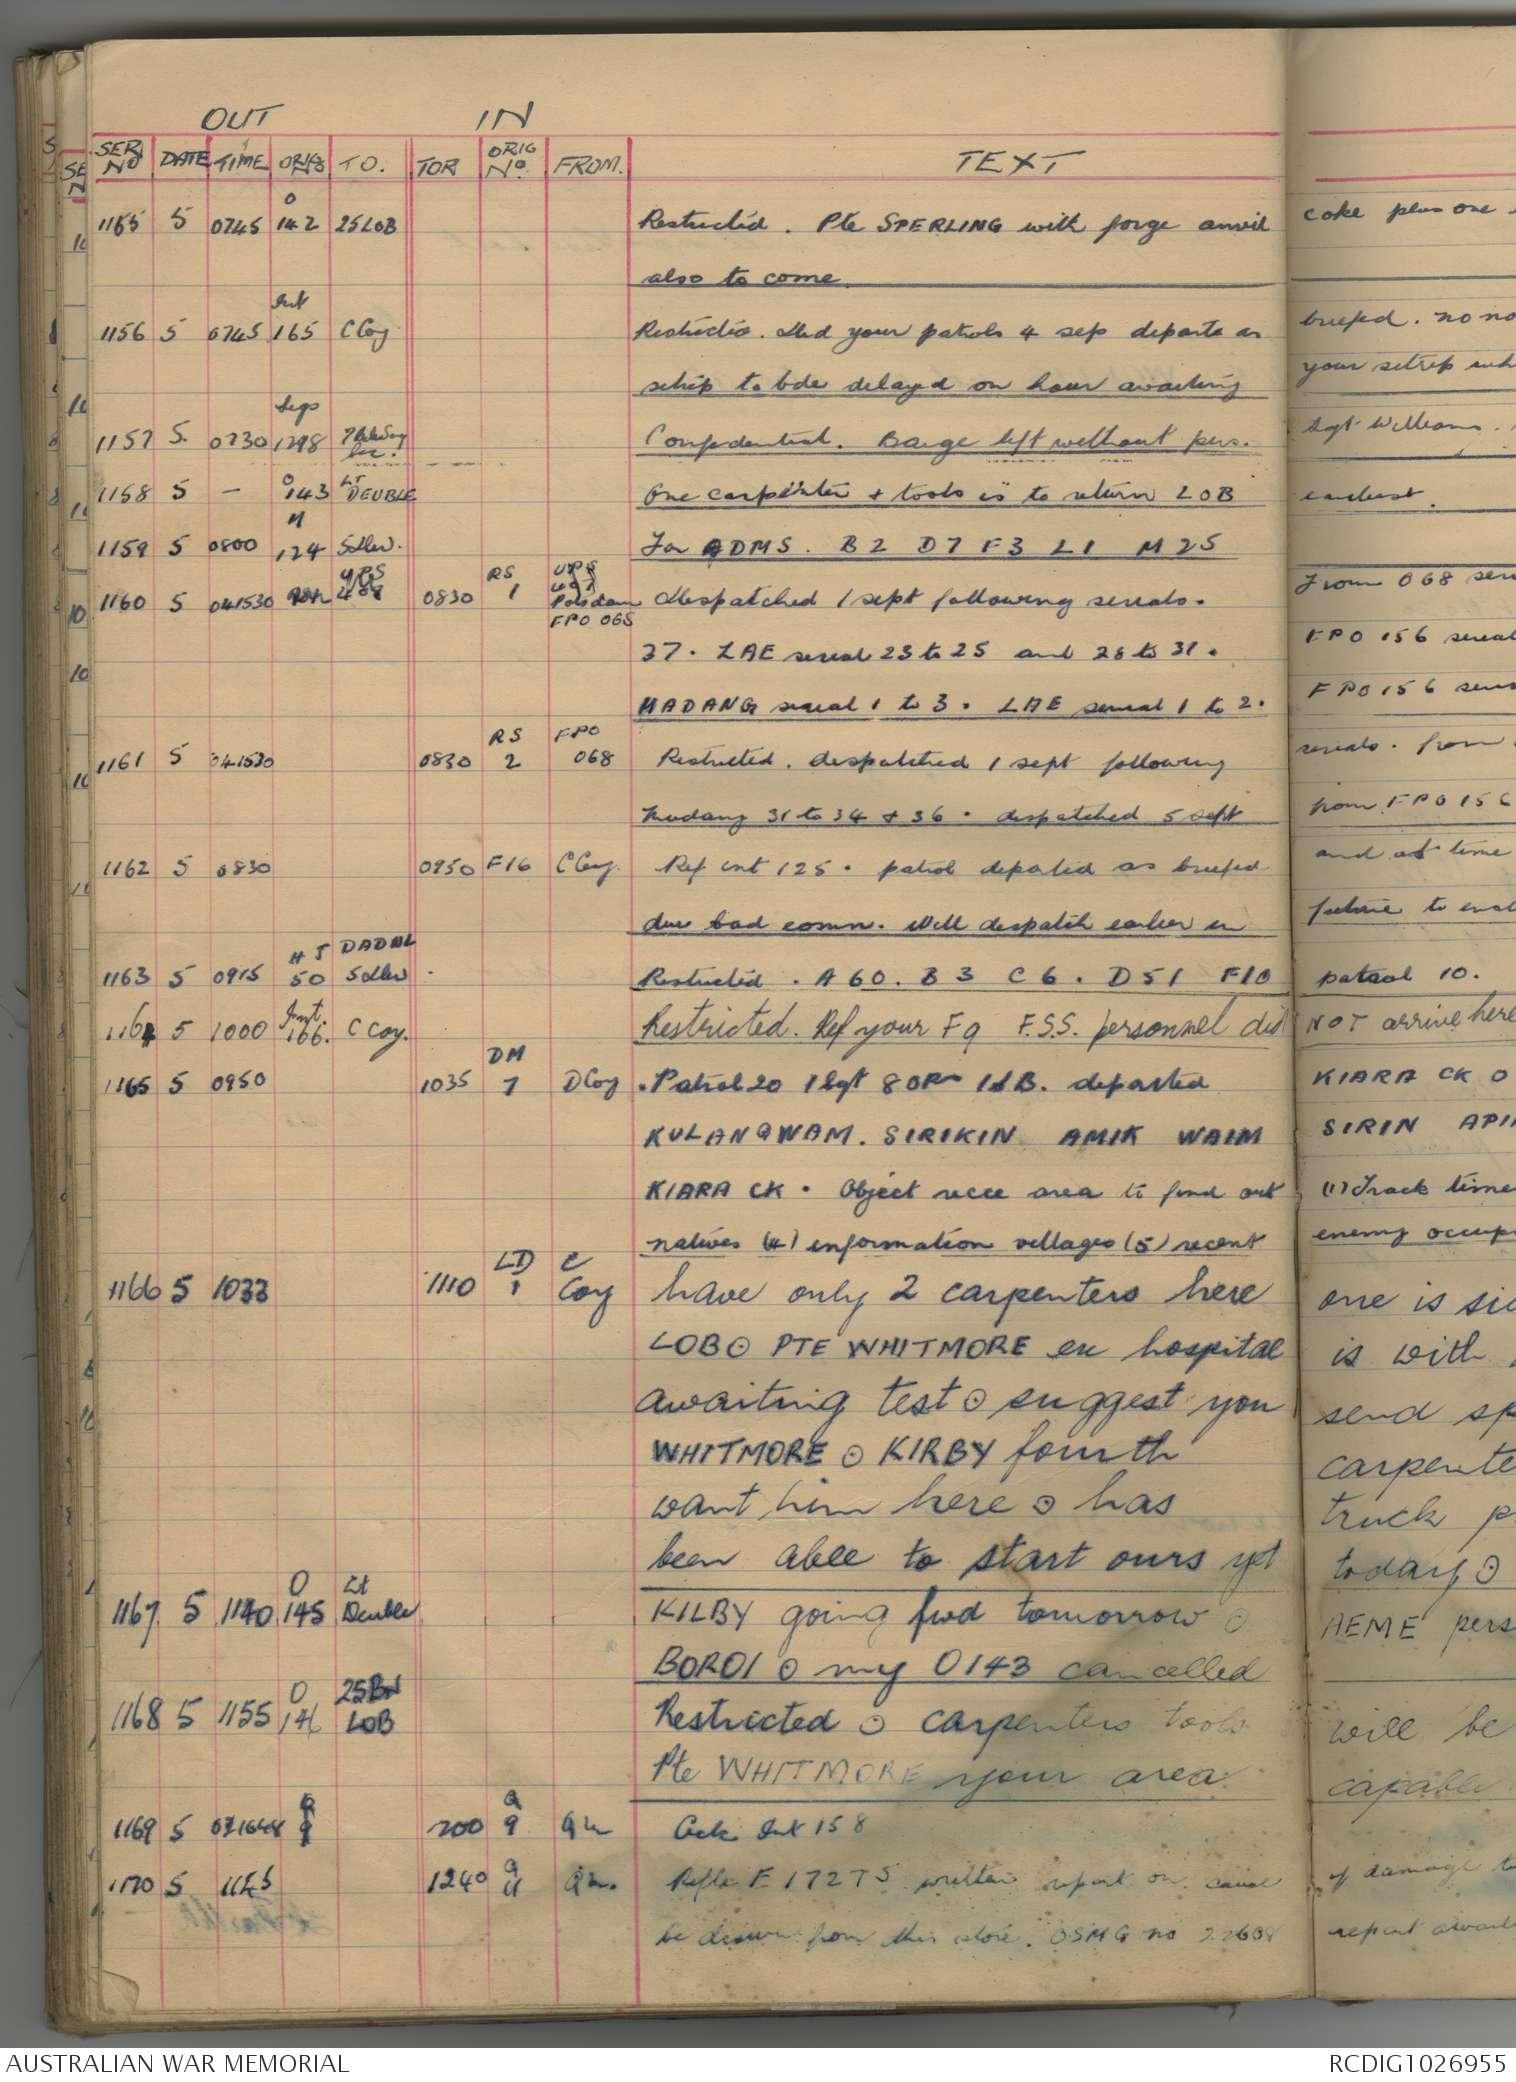 OUT IN
SER No DATE TIME ORIG No TO. TOR ORIG No. FROM. TEXT
1155 5 0745 O 142 25 LOB Restricted. Pte SPERLING with forge anvil coke plus one
also to come.
1156 5 0745 Int 165 C Coy Restricted. did your patrols 4 sep departe as briefed. no no
setrep to bde delayed on hour awaiting your setrep
1157 5. 0730 Sigs 1298 Confidential. Barge left without pers. Sgt Williams.
1158 5 - O 143 LT DEUBLE One carpenter + tools is to return LOB earliest.
1159 5 0800 H 124 5 div. For ADMS. B2 D7 F3 L1 M25
1160 5 041530 UPS 0830 RS 1 UPS Potsdam FPO 065 Despatched 1 sept following serials. From 068
37. LAE serial 23 to 25 and 28 to 31. FPO 156 serial
MADANG serial 1 to 3. LAE serial 1 to 2. FPO 156
1161 5 041530 0830 RS 2 FPO 068 Restricted. despatched 1 sept following serials. from
Madang 31 to 34 + 36. despatched 5 sept from FPO 156
1162 5 0830 0950 F16 C Coy. Ref int 125. patrol departed as briefed and at time
due bad comm. Will despatch earlier in future to
1163 5 0915 HJ 50 DADAL 5 div Restricted. A60. B3 C6. D51 F10 patrol 10.
1164 5 1000 Int. 166. C Coy. Restricted. Ref your F9 F.S.S. personnel did NOT arrive here
1165 5 0950 1035 DM 7 D Coy Patrol 20 1 Sgt 8 ORs 1 dB. departed KIARA CK
KULANGWAM. SIRIKIN AMIK WAIM SIRIN
KIARA CK. Object recce area to find out (1) Track time
natives (4) information villages (5) recent enemy
1166 5 1033 1110 LD 1 C Coy have only 2 carpenters here one is
LOB ⊙ PTE WHITMORE ex hospital is with
awaiting test ⊙ suggest you send
WHITMORE ⊙ KIRBY fourth
want him here ⊙ has truck
been able to start ours yet today ⊙
1167 5 1140 O 145 Lt Deuble KILBY going fwd tomorrow ⊙ AEME
BOROI ⊙ my O143 cancelled
1168 5 1155 O 146 25 Bn LOB Restricted ⊙ carpenters tools will be
Pte WHITMORE your area. capable
1169 5 Q 9 1200 Q 9 Ack Int 158
1170 5 1155 1240 Q 11 F 172 TS written report on of damage
be drawn from this store. OSMG no 22608 report
AUSTRALIAN WAR MEMORIAL RCDIG1026955